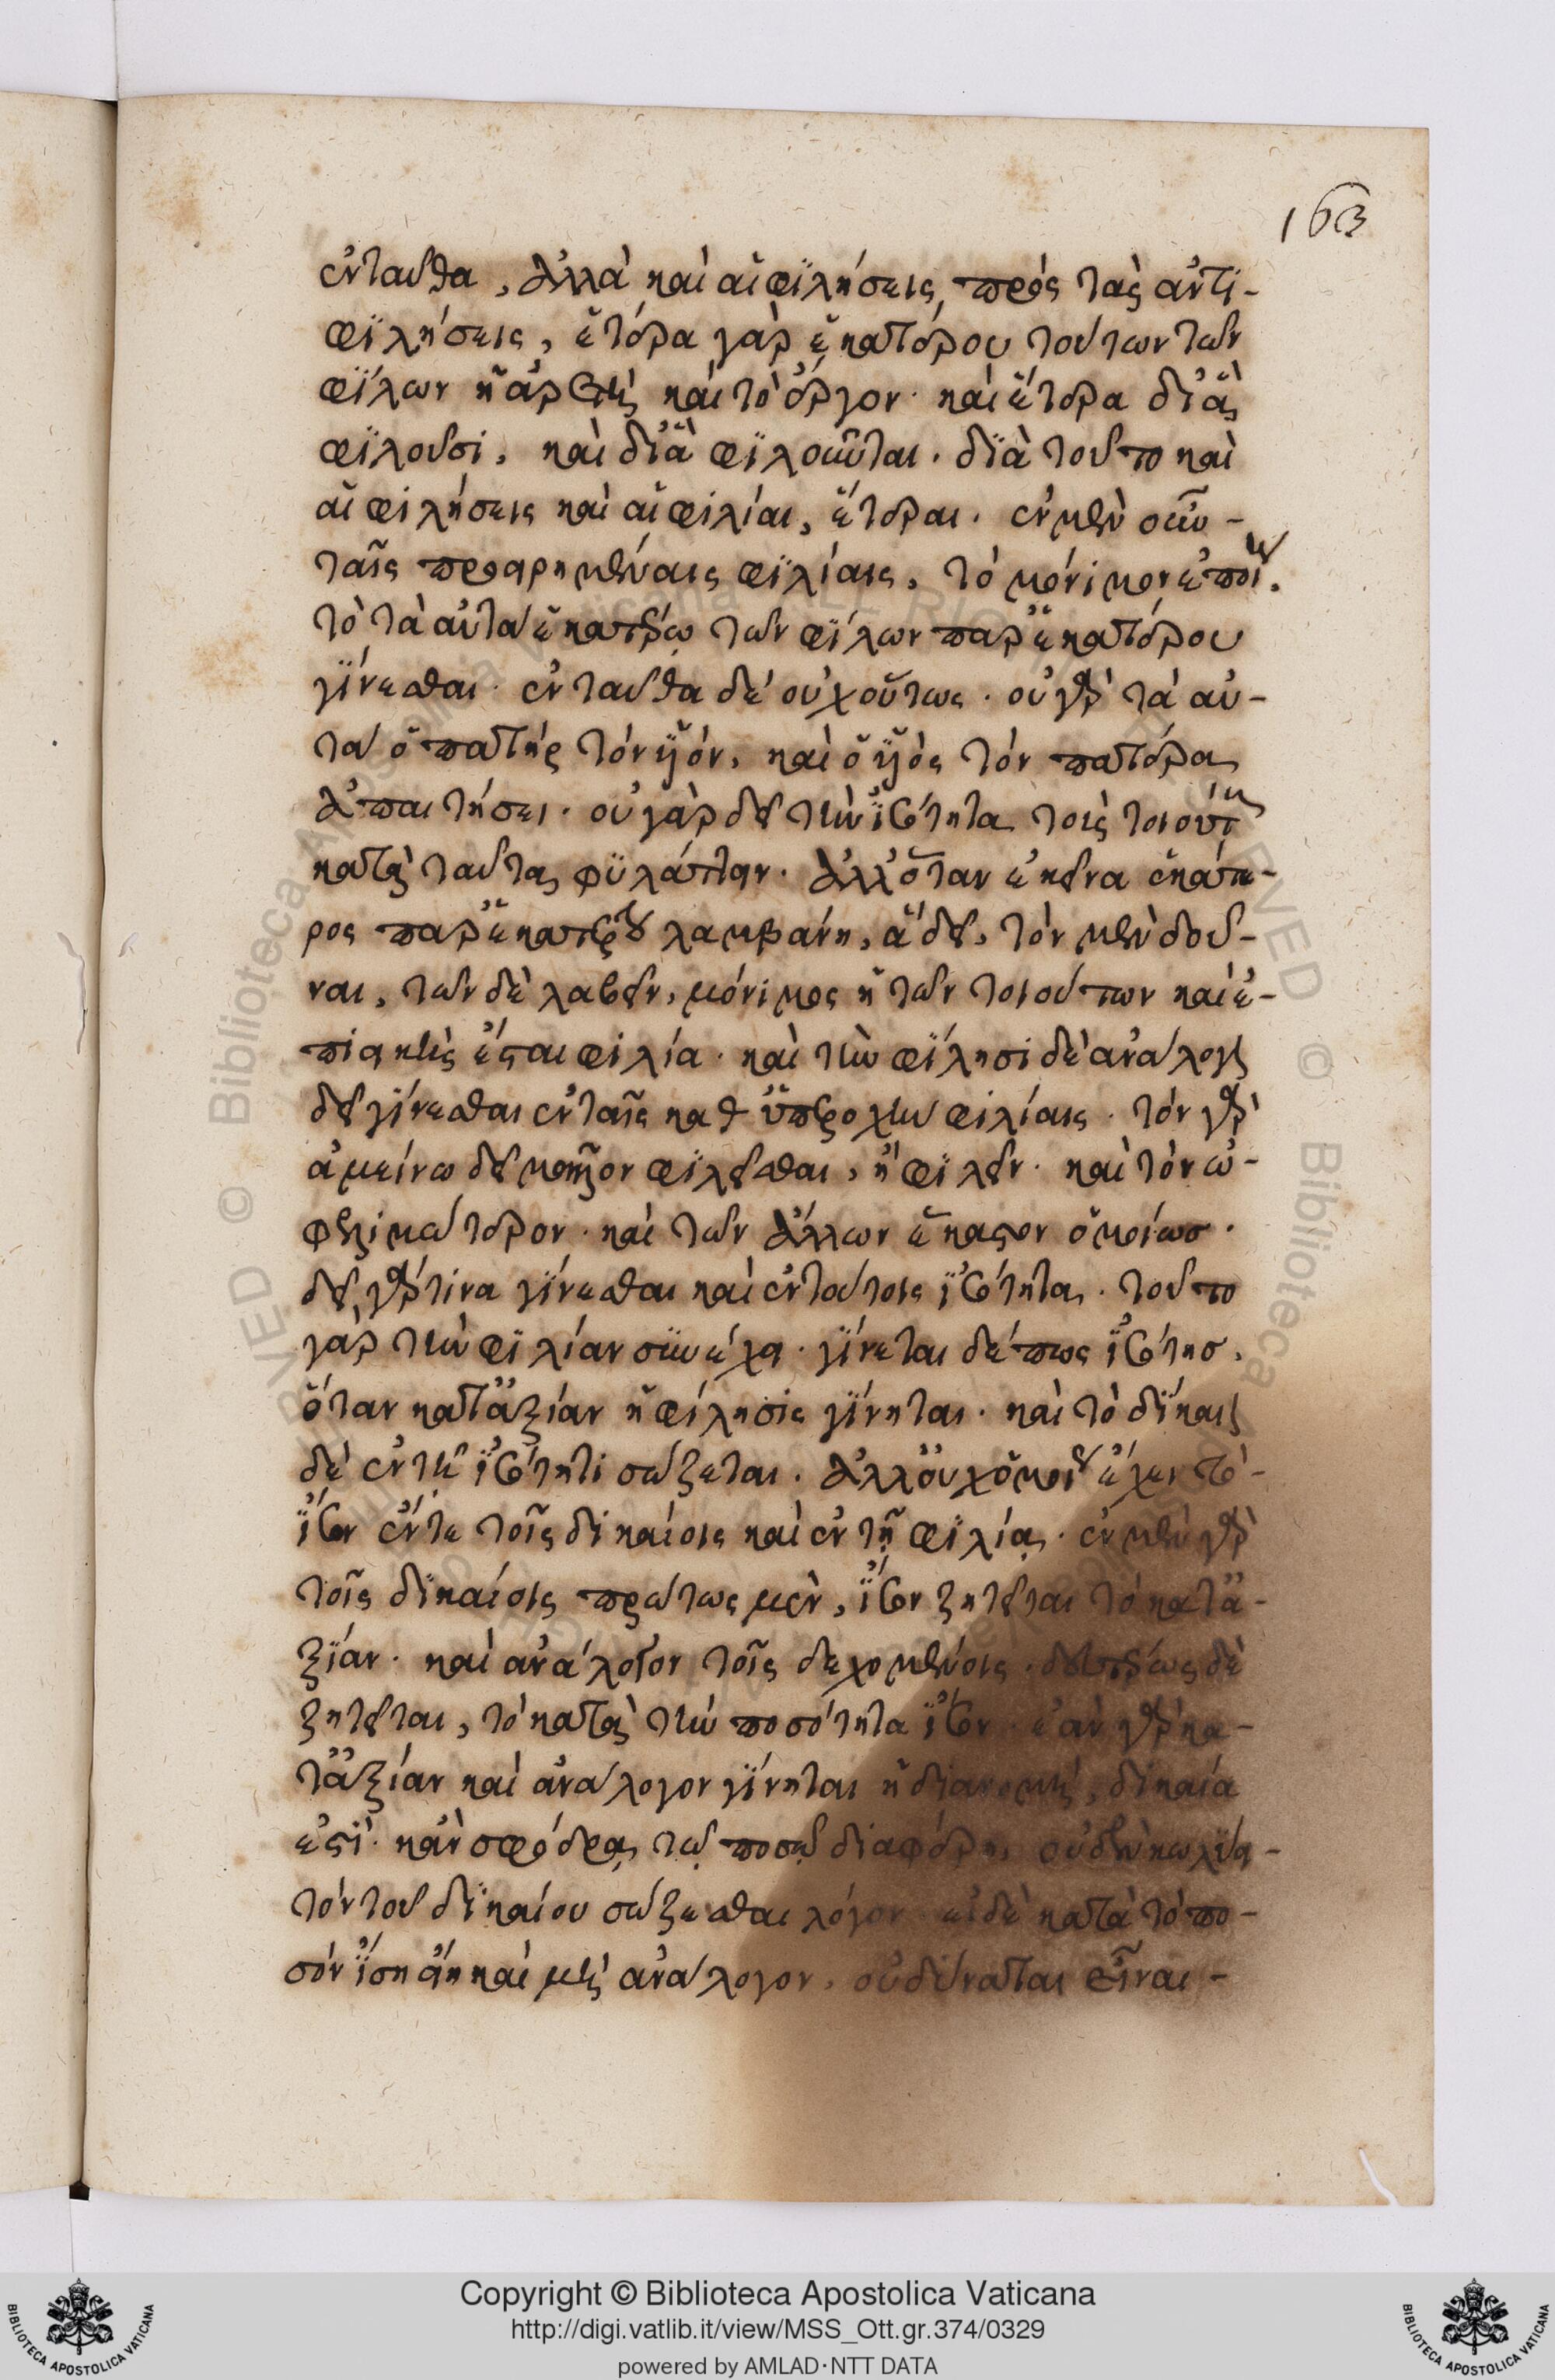 163
ἐνταῦθα, ἀλλὰ καὶ αἱ φιλήσεις πρὸς τὰς ἀντι-
φιλήσεις, ἑτέρα γὰρ ἑκατέρου τούτων τῶν
φίλων ἡ ἀρετὴ καὶ τὸ ἔργον· καὶ ἕτερα δι' ἃ
φιλοῦσι, καὶ δι' ἃ φιλοῦνται. διὰ τοῦτο καὶ
αἱ φιλήσεις καὶ αἱ φιλίαι, ἕτεραι. ἐν μὲν οὖν
ταῖς προειρημέναις φιλίαις, τὸ μόνιμον ἐποίει.
τὸ τὰ αὐτὰ ἑκατέρῳ τῶν φίλων παρ' ἑκατέρου
γίνεσθαι· ἐνταῦθα δὲ οὐχ οὕτως. οὐ γὰρ τὰ αὐ-
τὰ ὁ πατὴρ τὸν υἱὸν, καὶ ὁ υἱὸς τὸν πατέρα
ἀπαιτήσει. οὐ γὰρ δεῖ τὴν ἰσότητα τοὺς τοιούτους
κατὰ ταῦτα φυλάττειν. ἀλλ' ὅταν ἐκεῖνα ἑκάτε-
ρος παρ' ἑκατέρου λαμβάνῃ, ἃ δεῖ, τὸν μὲν δοῦ-
ναι, τῶν δὲ λαβεῖν, μόνιμος ἡ τῶν τοιούτων καὶ ἐ-
πιεικὴς ἔσται φιλία. καὶ τὴν φίλησι δὲ ἀνάλογον
δεῖ γίνεσθαι ἐν ταῖς καθ' ὑπεροχὴν φιλίαις. τὸν γὰρ
ἀμείνω δεῖ μᾶλλον φιλεῖσθαι, ἢ φιλεῖν. καὶ τὸν ὠ-
φελιμώτερον. καὶ τῶν ἄλλων ἕκαστον ὁμοίως.
δεῖ γάρ τινα γίνεσθαι καὶ ἐν τούτοις ἰσότητα. τοῦτο
γὰρ τὴν φιλίαν συνέχει. γίνεται δέ πως ἰσότης,
ὅταν κατ' ἀξίαν ἡ φίλησις γίνηται. καὶ τὸ δίκαιον
δὲ ἐν τῇ ἰσότητι σώζεται. ἀλλ' οὐχ ὁμοίως ἔχει τὸ
ἴσον ἔν τε τοῖς δικαίοις καὶ ἐν τῇ φιλίᾳ. ἐν μὲν γὰρ
τοῖς δικαίοις πρώτως μὲν, ἴσον ζητεῖται τὸ κατ' ἀ-
ξίαν. καὶ ἀνάλογον τοῖς δεχομένοις. δευτέρως δὲ
ζητεῖται, τὸ κατὰ τὴν ποσότητα ἴσον. ἐὰν γὰρ κα-
τ' ἀξίαν καὶ ἀνάλογον γίνηται ἡ διανομὴ, δικαία
ἐστί. κἂν σφόδρα τῷ ποσῷ διαφέρῃ, οὐδὲν κωλύει
τὸν τοῦ δικαίου σώζεσθαι λόγον. εἰ δὲ κατὰ τὸ πο-
σὸν ἴση εἴη καὶ μὴ ἀνάλογον, οὐ δύναται εἶναι -
Copyright © Biblioteca Apostolica Vaticana
http://digi.vatlib.it/view/MSS_Ott.gr.374/0329
powered by AMLAD·NTT DATA